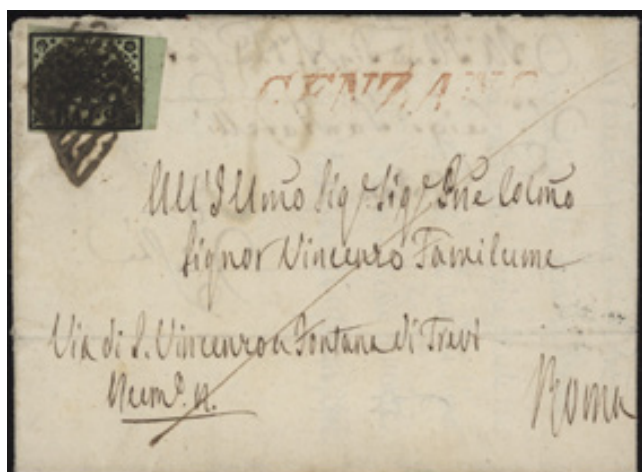 GENZANO
All'Illmo Sig.r Sig.r Pne Colmo
Signor Vincenzo Tamilume
Via di S. Vincenzo a Fontana di Trevi
Roma